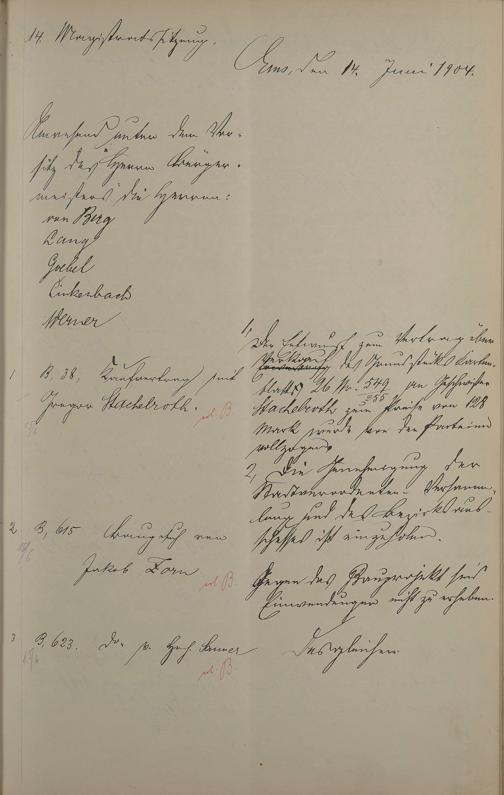 14. Magistratssitzung.
Ems, den 14. Juni 1904.
Anwesend unter dem Vor-
sitz des Herrn Bürger-
meisters die Herren:
von Berg
Lang
Goebel
Linkenbach
Werner
1 B, 38, Kaufvertrag mit
Gregor Stachelroth.
1, Der Entwurf zum Vertrag über
Verkauf des Grundstücks Karten-
blatts 26 No. 349/255 an
Stachelroth zum Preise von 128
Mark wurde von den Parteien
vollzogen.
2, Die Genehmigung der
Stadtverordneten-Versamm-
lung und des Bezirksaus-
schusses ist einzuholen.
2 B, 615 Baugesuch von
Jakob Zorn
Gegen das Bauprojekt sind
Einwendungen nicht zu erheben.
3 B, 623. do. p.
Desgleichen